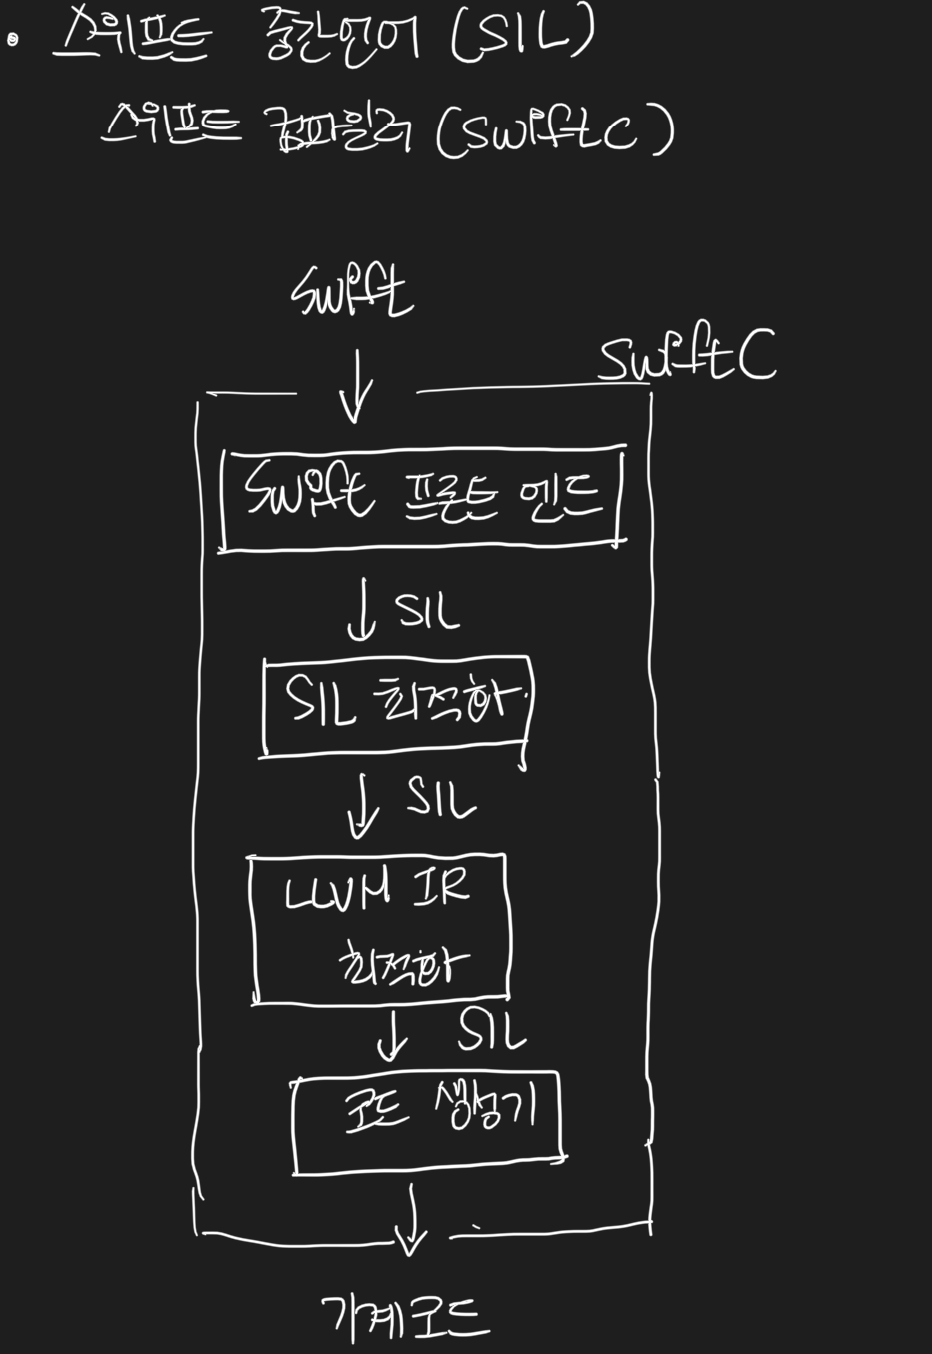 • 스위프트 중간언어 (SIL)
스위프트 컴파일러 (swiftc)
Swift
SwiftC
Swift 프론트 엔드
SIL
SIL 최적화
SIL
LLVM IR
최적화
SIL
코드 생성기
기계코드